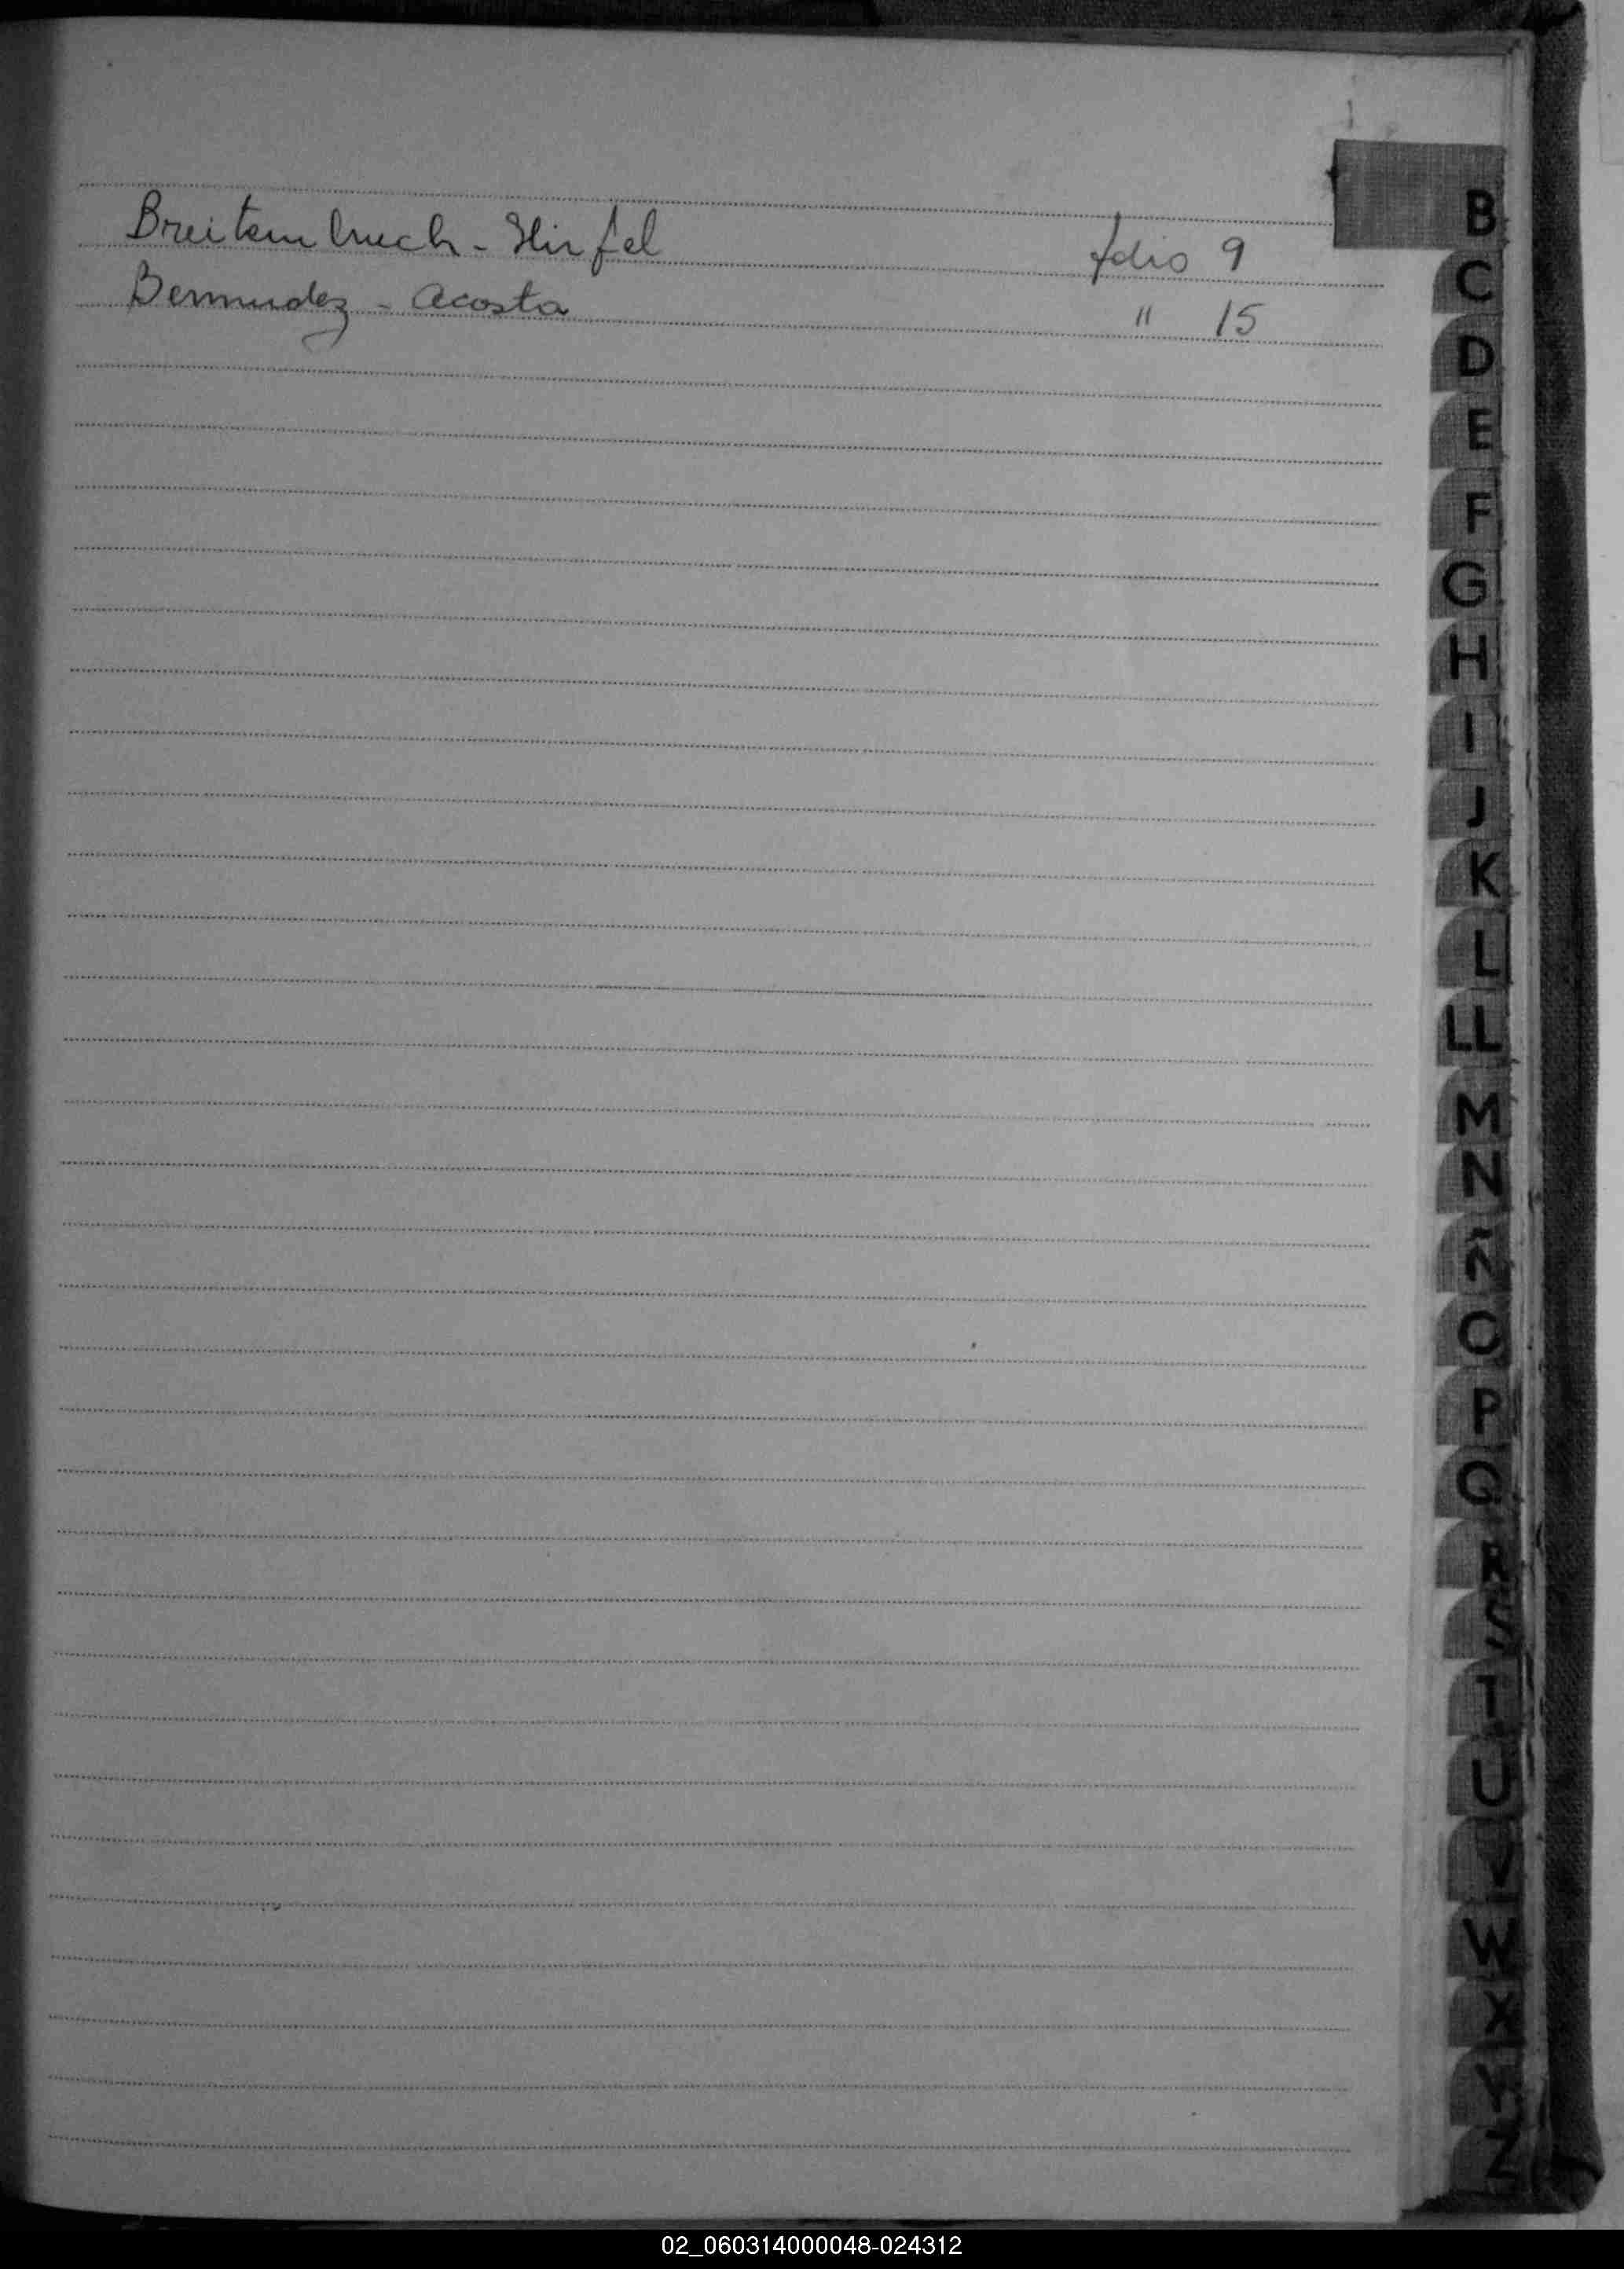 Breitembruch - Hirfel folio 9
Bermudez - Acosta " 15
B
C
D
E
F
G
H
I
J
K
L
LL
M
N
Ñ
O
P
Q
R
S
T
U
V
W
X
Y
Z
02_060314000048-024312